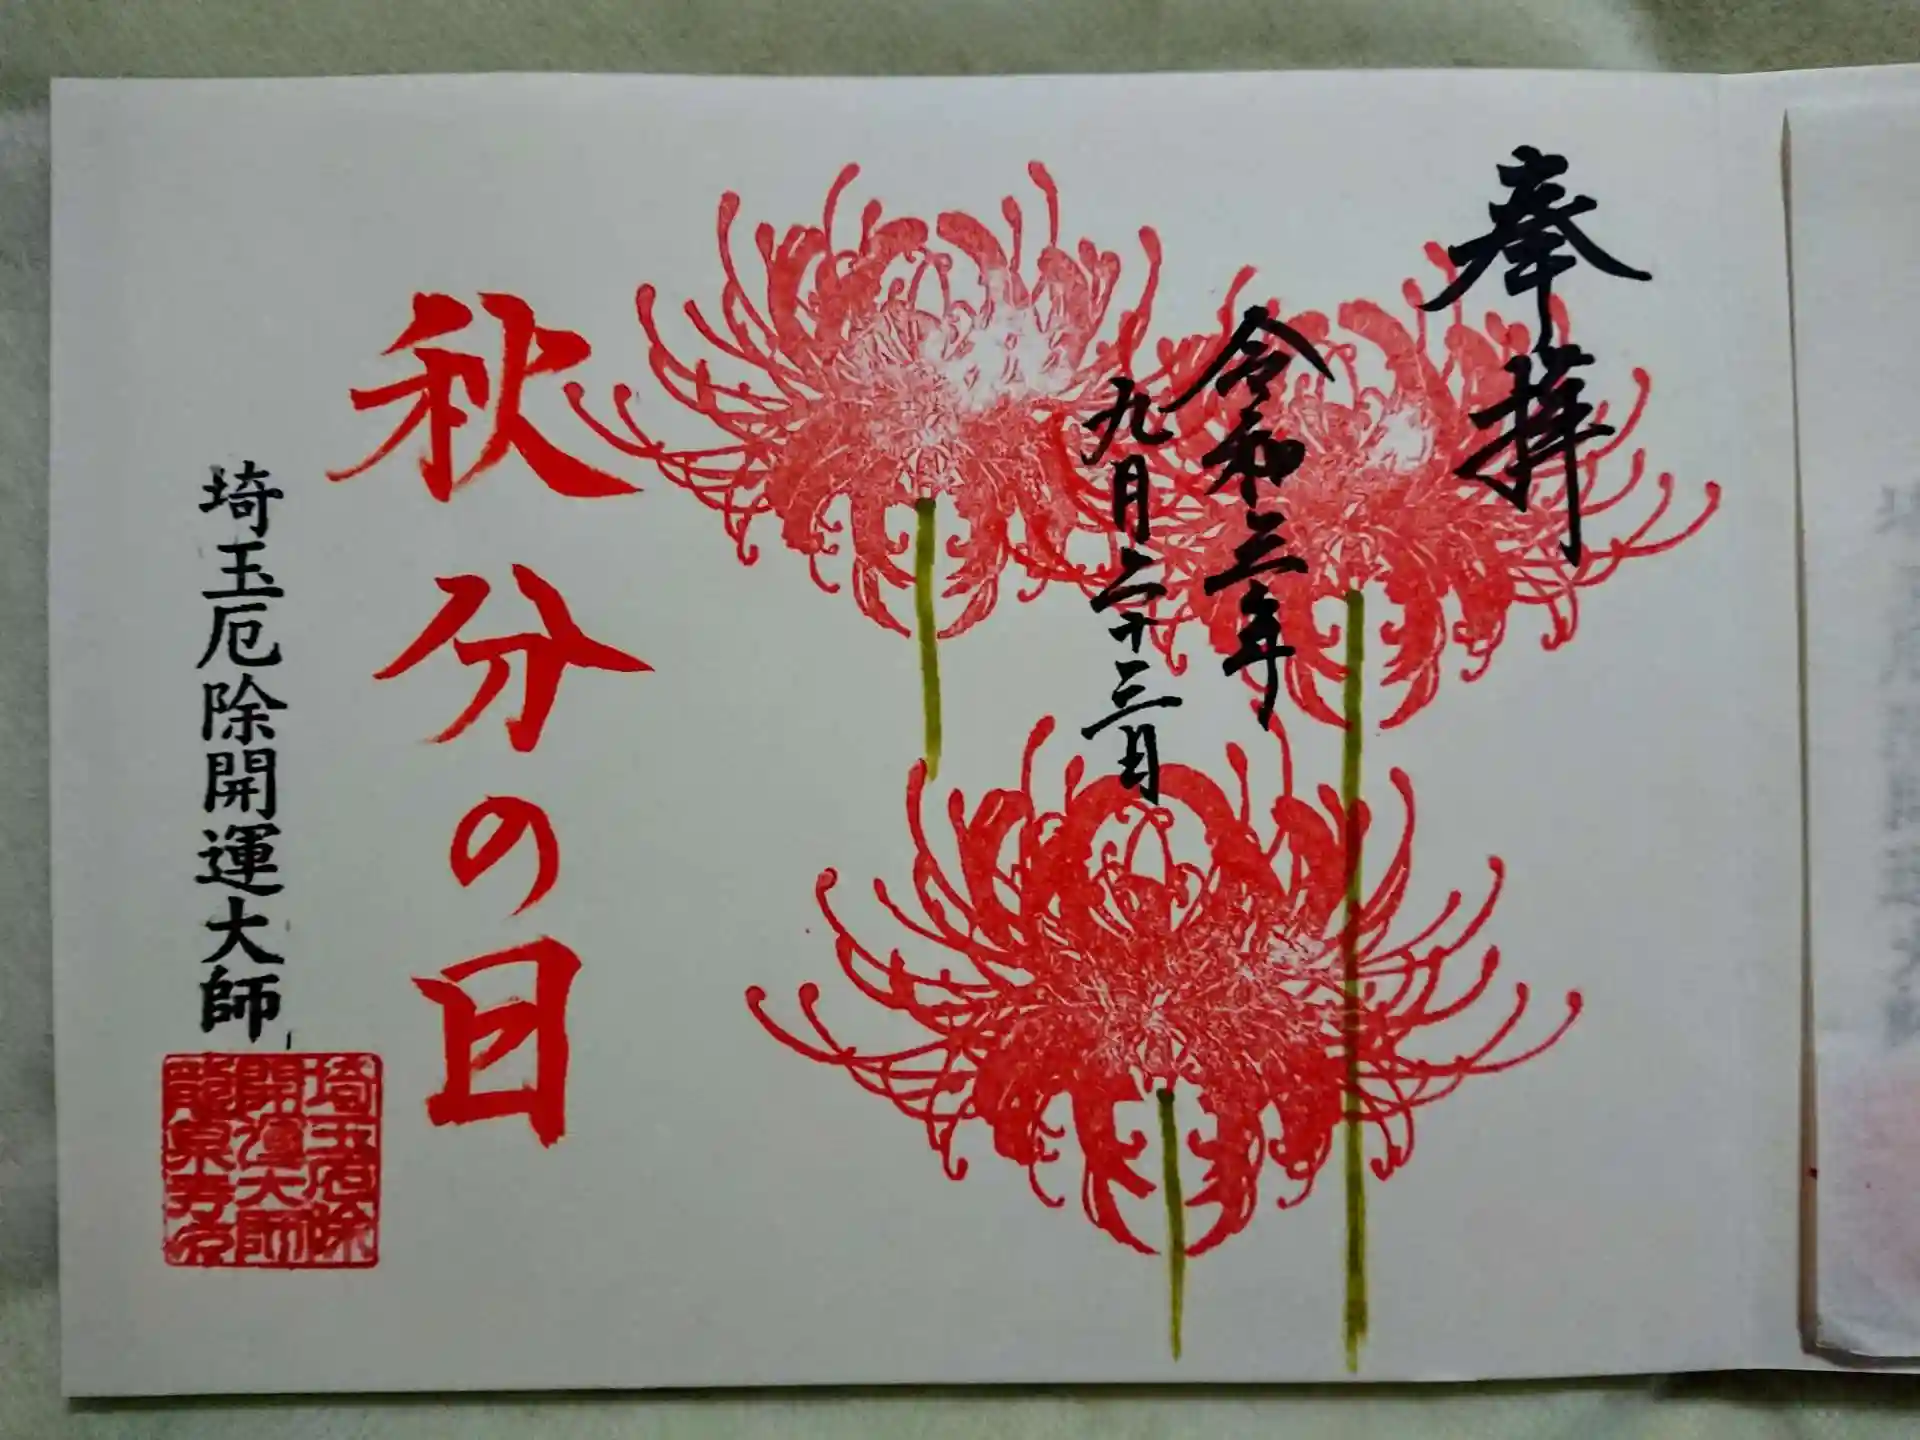 奉拝
令和三年
九月二十三日
秋分の日
埼玉厄除開運大師
埼玉厄除
開運大師
龍泉寺印